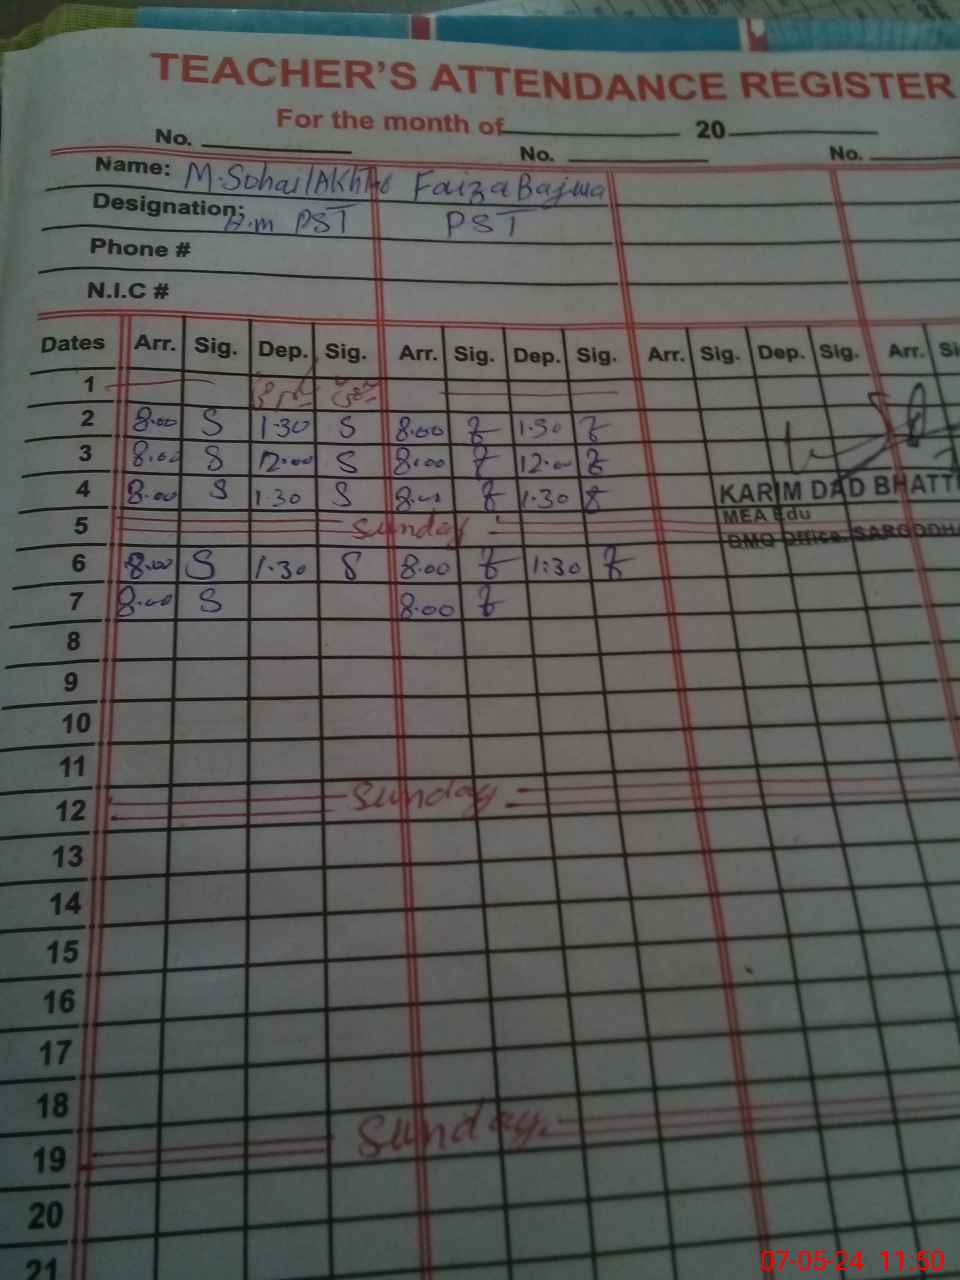 TEACHER'S ATTENDANCE REGISTER
For the month of 20
No. No. No.
Name: M. Sohail Akhtar Faiza Bajwa
Designation: PST PST
Phone #
N.I.C #
Dates Arr. Sig. Dep. Sig. Arr. Sig. Dep. Sig. Arr. Sig. Dep. Sig. Arr.
1
2 8.00 S 1.30 S 8.00 1.30
3 8.00 S 12.00 S 8.00 12.00
4 8.00 S 1.30 S 8.00 1.30
KARIM DAD BHATTI
MEA Edu
5 Sunday
DMO Office, SARGODHA
6 8.00 S 1.30 S 8.00 1:30
7 8.00 S 8.00
8
9
10
11
12 Sunday
13
14
15
16
17
18
19 Sunday
20
21
07-05-24 11:50